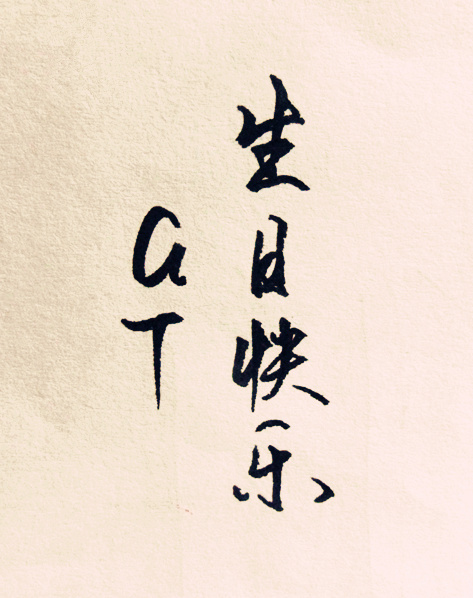 生日快乐
GT